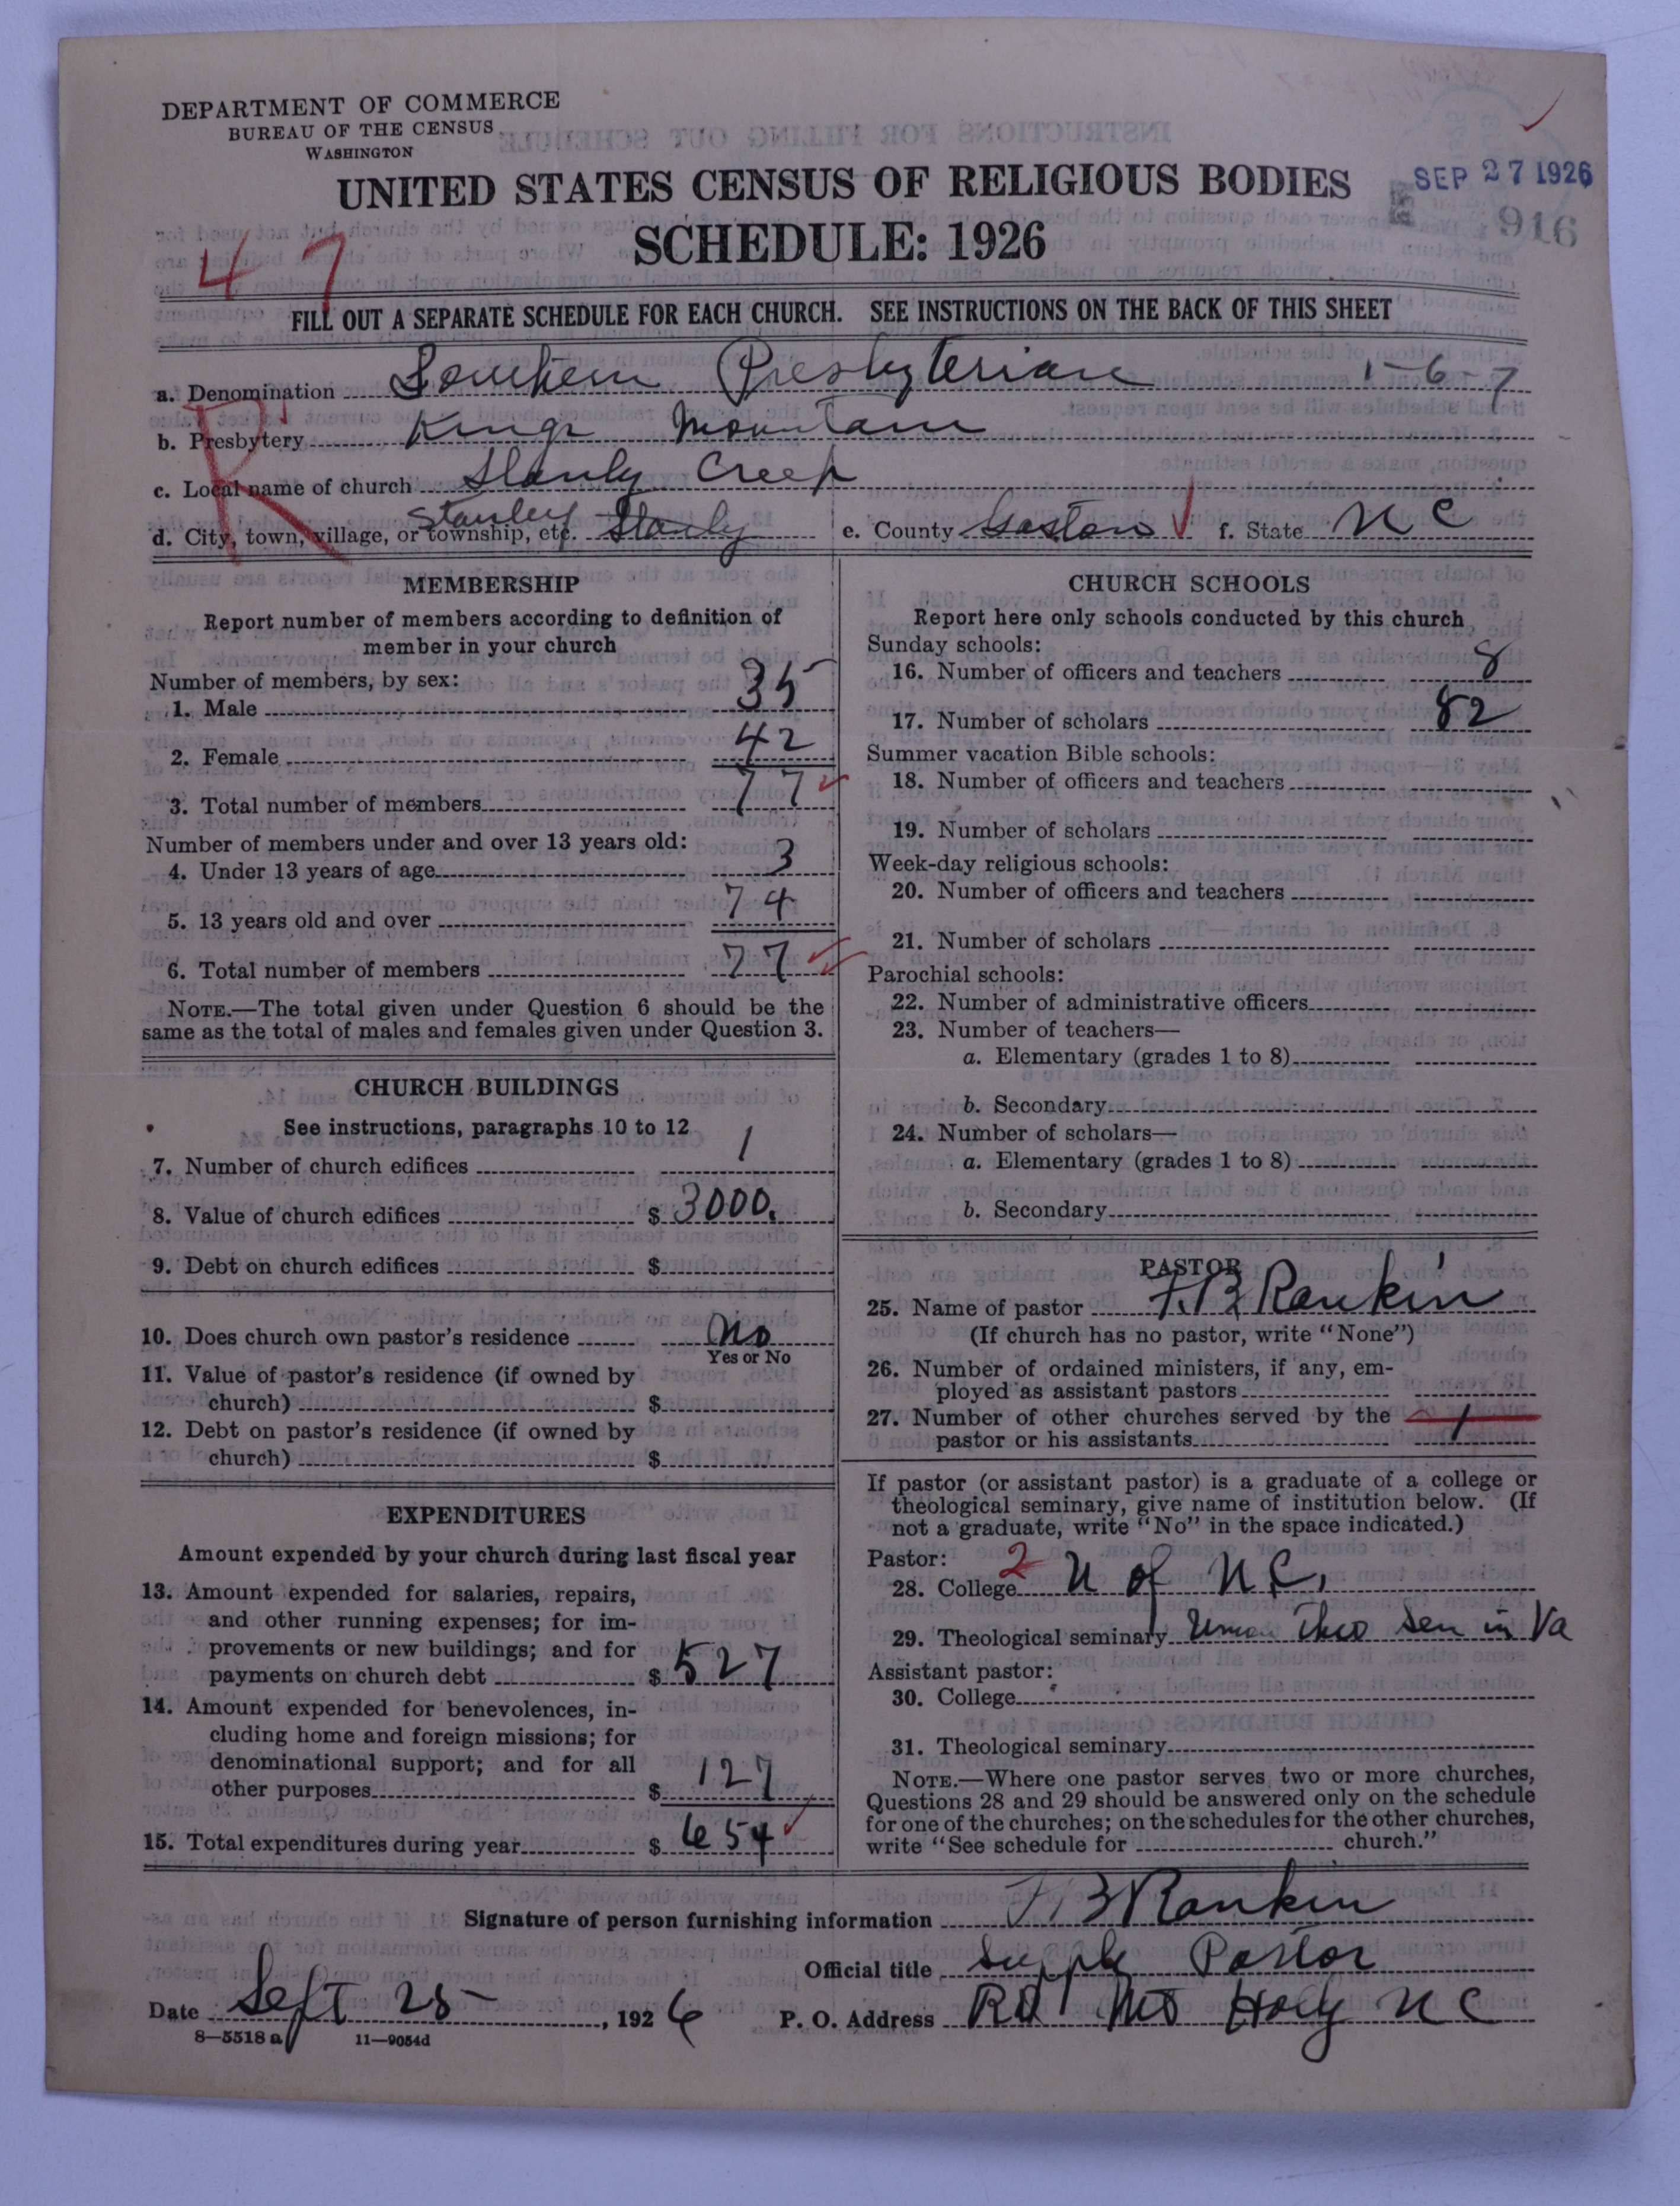 DEPARTMENT OF COMMERCE
BUREAU OF THE CENSUS
WASHINGTON
UNITED STATES CENSUS OF RELIGIOUS BODIES
SCHEDULE: 1926
SEP 27 1926
916
47
FILL OUT A SEPARATE SCHEDULE FOR EACH CHURCH. SEE INSTRUCTIONS ON THE BACK OF THIS SHEET
a. Denomination Southern Presbyterian 1-6-7
b. Presbytery Kings Mountain
R
c. Local name of church Stanly Creek
d. City, town, village, or township, etc. Stanley Stanly e. County Gaston f. State N C
MEMBERSHIP
Report number of members according to definition of
member in your church
Number of members, by sex:
1. Male 35
2. Female 42
3. Total number of members 77
Number of members under and over 13 years old:
4. Under 13 years of age 3
5. 13 years old and over 74
6. Total number of members 77
NOTE.—The total given under Question 6 should be the
same as the total of males and females given under Question 3.
CHURCH BUILDINGS
See instructions, paragraphs 10 to 12
7. Number of church edifices 1
8. Value of church edifices $ 3000.
9. Debt on church edifices $
10. Does church own pastor's residence No
Yes or No
11. Value of pastor's residence (if owned by
church) $
12. Debt on pastor's residence (if owned by
church) $
EXPENDITURES
Amount expended by your church during last fiscal year
13. Amount expended for salaries, repairs,
and other running expenses; for im-
provements or new buildings; and for
payments on church debt $ 527
14. Amount expended for benevolences, in-
cluding home and foreign missions; for
denominational support; and for all
other purposes $ 127
15. Total expenditures during year $ 654
CHURCH SCHOOLS
Report here only schools conducted by this church
Sunday schools:
16. Number of officers and teachers 8
17. Number of scholars 82
Summer vacation Bible schools:
18. Number of officers and teachers
19. Number of scholars
Week-day religious schools:
20. Number of officers and teachers
21. Number of scholars
Parochial schools:
22. Number of administrative officers
23. Number of teachers—
a. Elementary (grades 1 to 8)
b. Secondary
24. Number of scholars—
a. Elementary (grades 1 to 8)
b. Secondary
PASTOR
25. Name of pastor F. B Rankin
(If church has no pastor, write "None")
26. Number of ordained ministers, if any, em-
ployed as assistant pastors
27. Number of other churches served by the
pastor or his assistants 1
If pastor (or assistant pastor) is a graduate of a college or
theological seminary, give name of institution below. (If
not a graduate, write "No" in the space indicated.)
Pastor: 2
28. College U of N.C.
29. Theological seminary Union Theo Sem in Va
Assistant pastor:
30. College
31. Theological seminary
NOTE.—Where one pastor serves two or more churches,
Questions 28 and 29 should be answered only on the schedule
for one of the churches; on the schedules for the other churches,
write "See schedule for church."
Signature of person furnishing information F B Rankin
Official title Supply Pastor
Date Sept 25, 1926 P. O. Address RD 1 Mt Holly N C
8—5518 a 11—9054d